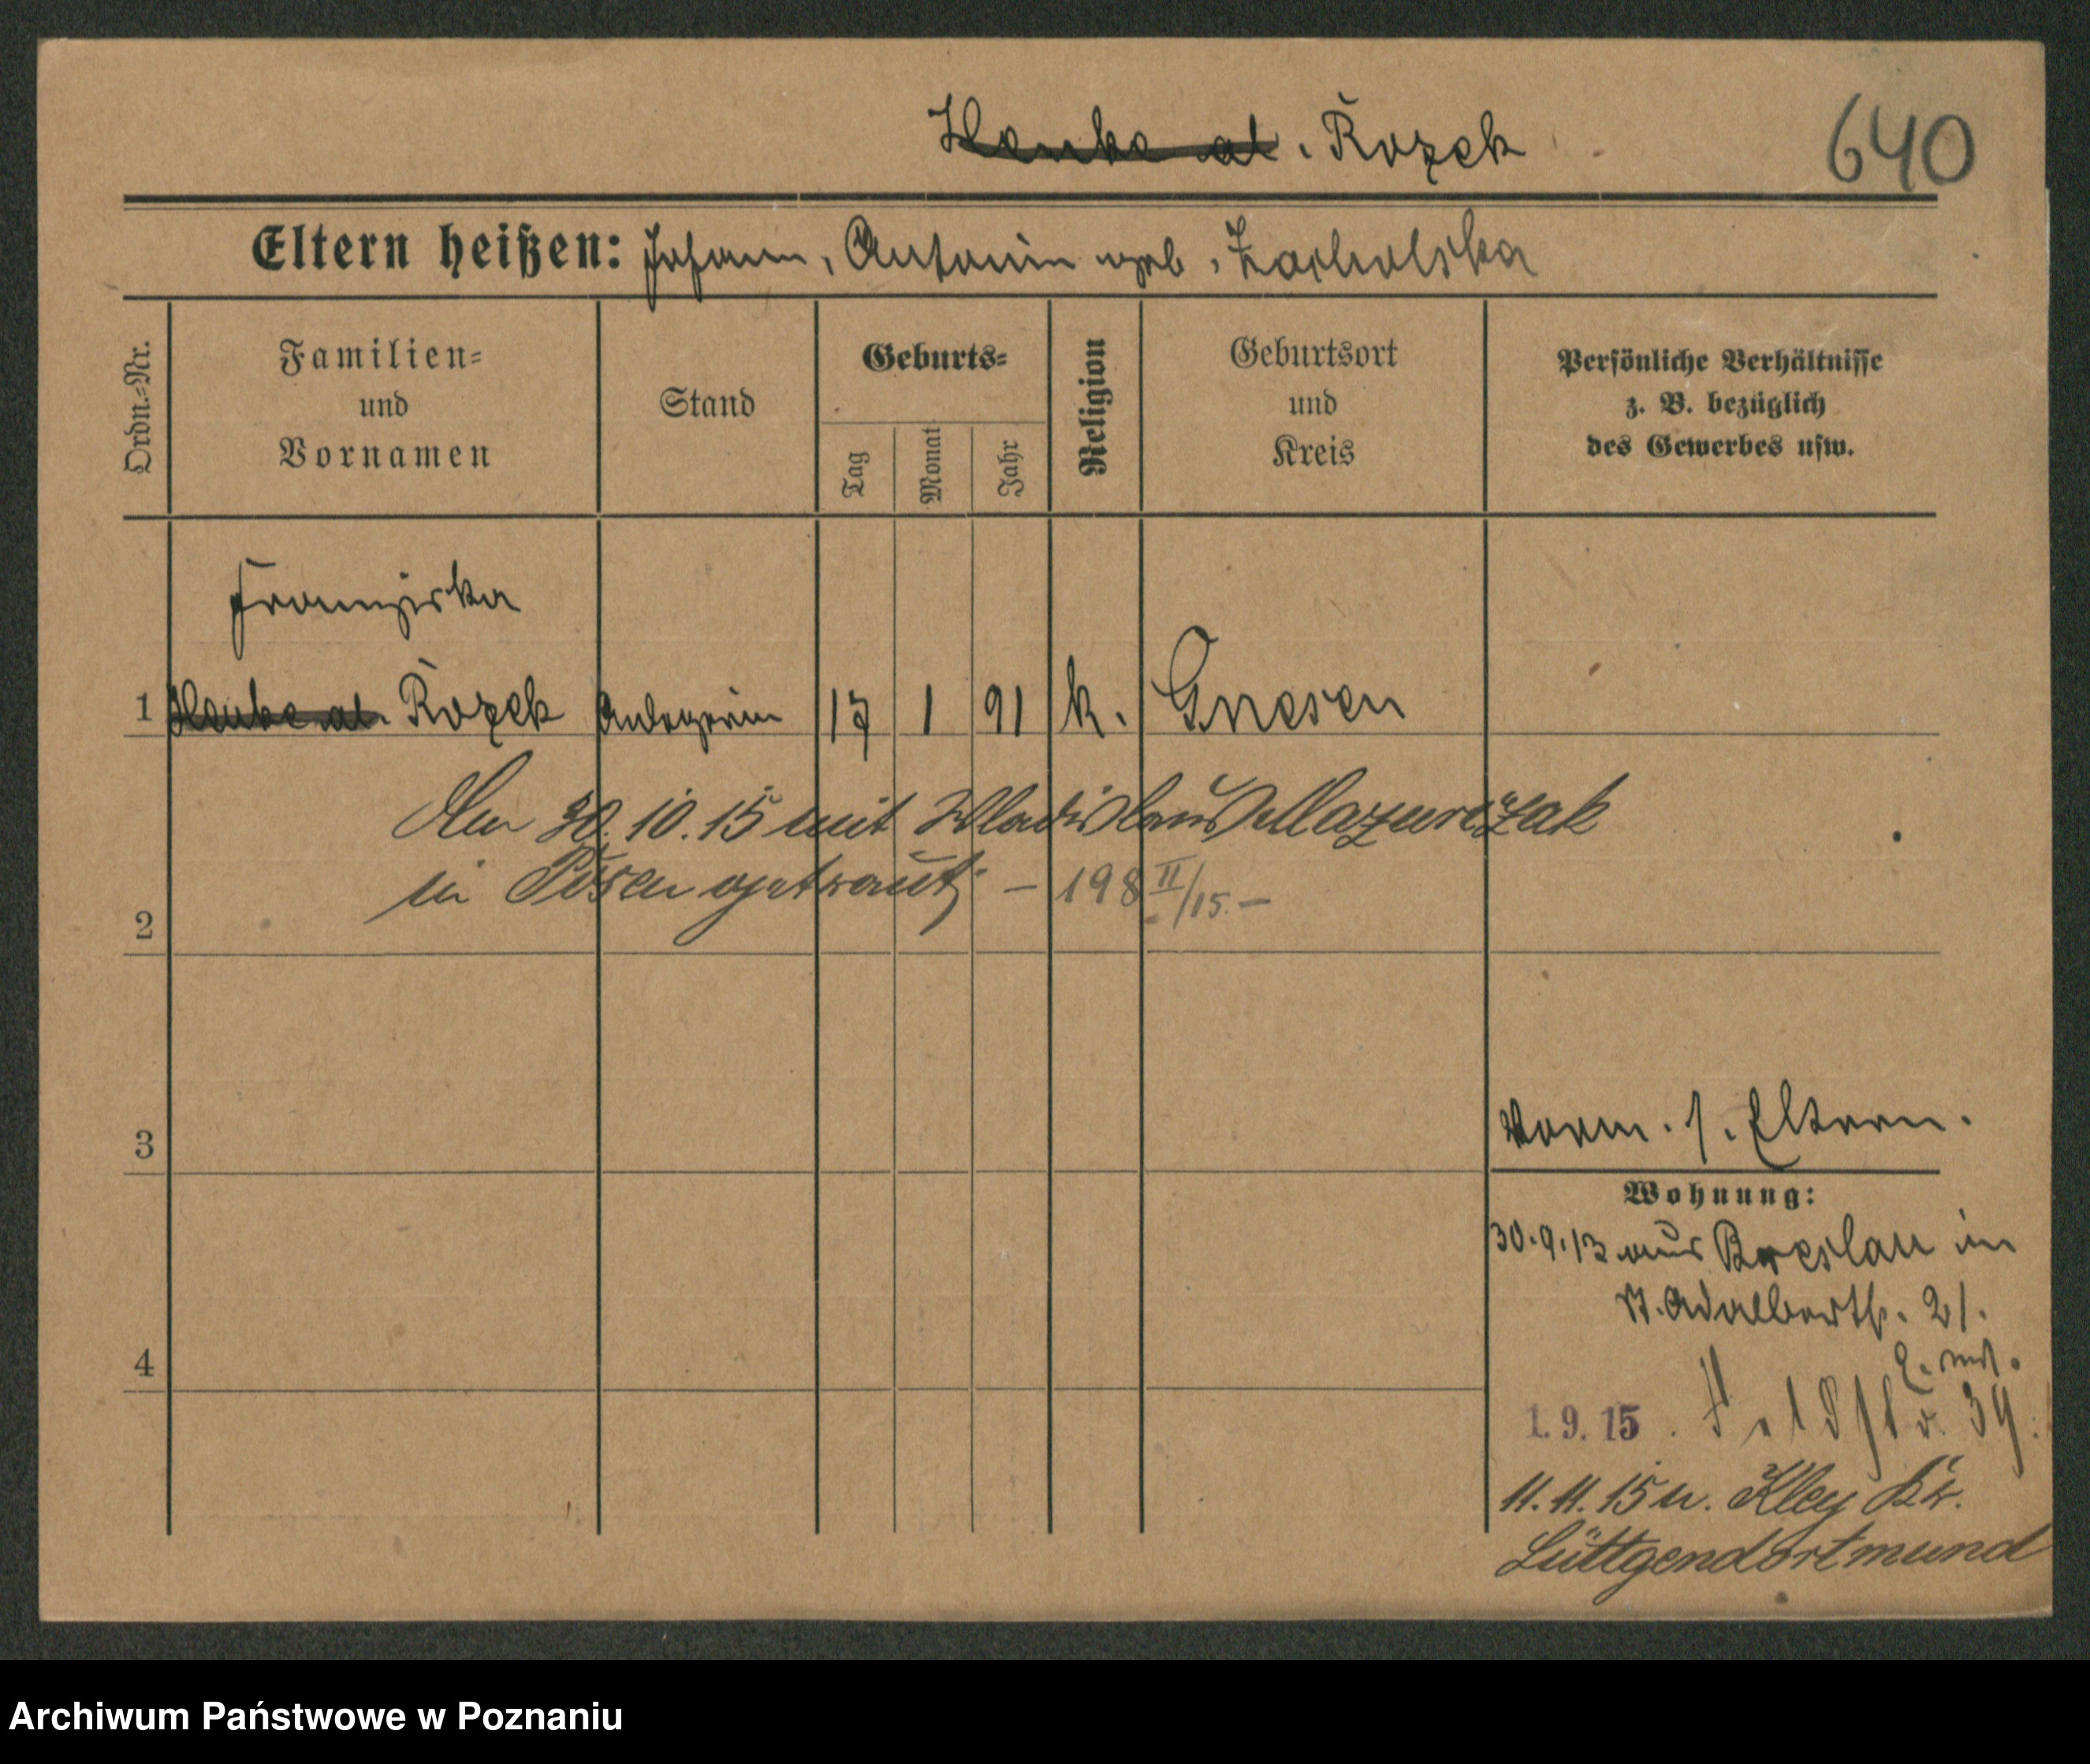 Henke al. Rozek
640
Eltern heißen: Johann, Antonin geb. Zacholska
Ordn.-Nr.
Familien-
und
Vornamen
Stand
Geburts-
Tag
Monat
Jahr
Religion
Geburtsort
und
Kreis
Persönliche Verhältnisse
z. B. bezüglich
des Gewerbes usw.
Franziska
1 Henke al. Rozek Anlegerin 17 1 91 k. Gnesen
Am 30.10.15 mit Wladislaus Mazurczak
in Posen getraut; – 198 II/15. –
2
3
Vorm. s. Eltern.
Wohnung:
30.9.13 aus Breslau in
St. Adalbertstr. 21.
4
1.9.15. 39.
11.11.15 n. Kley Kr.
Lüttgendortmund
Archiwum Państwowe w Poznaniu